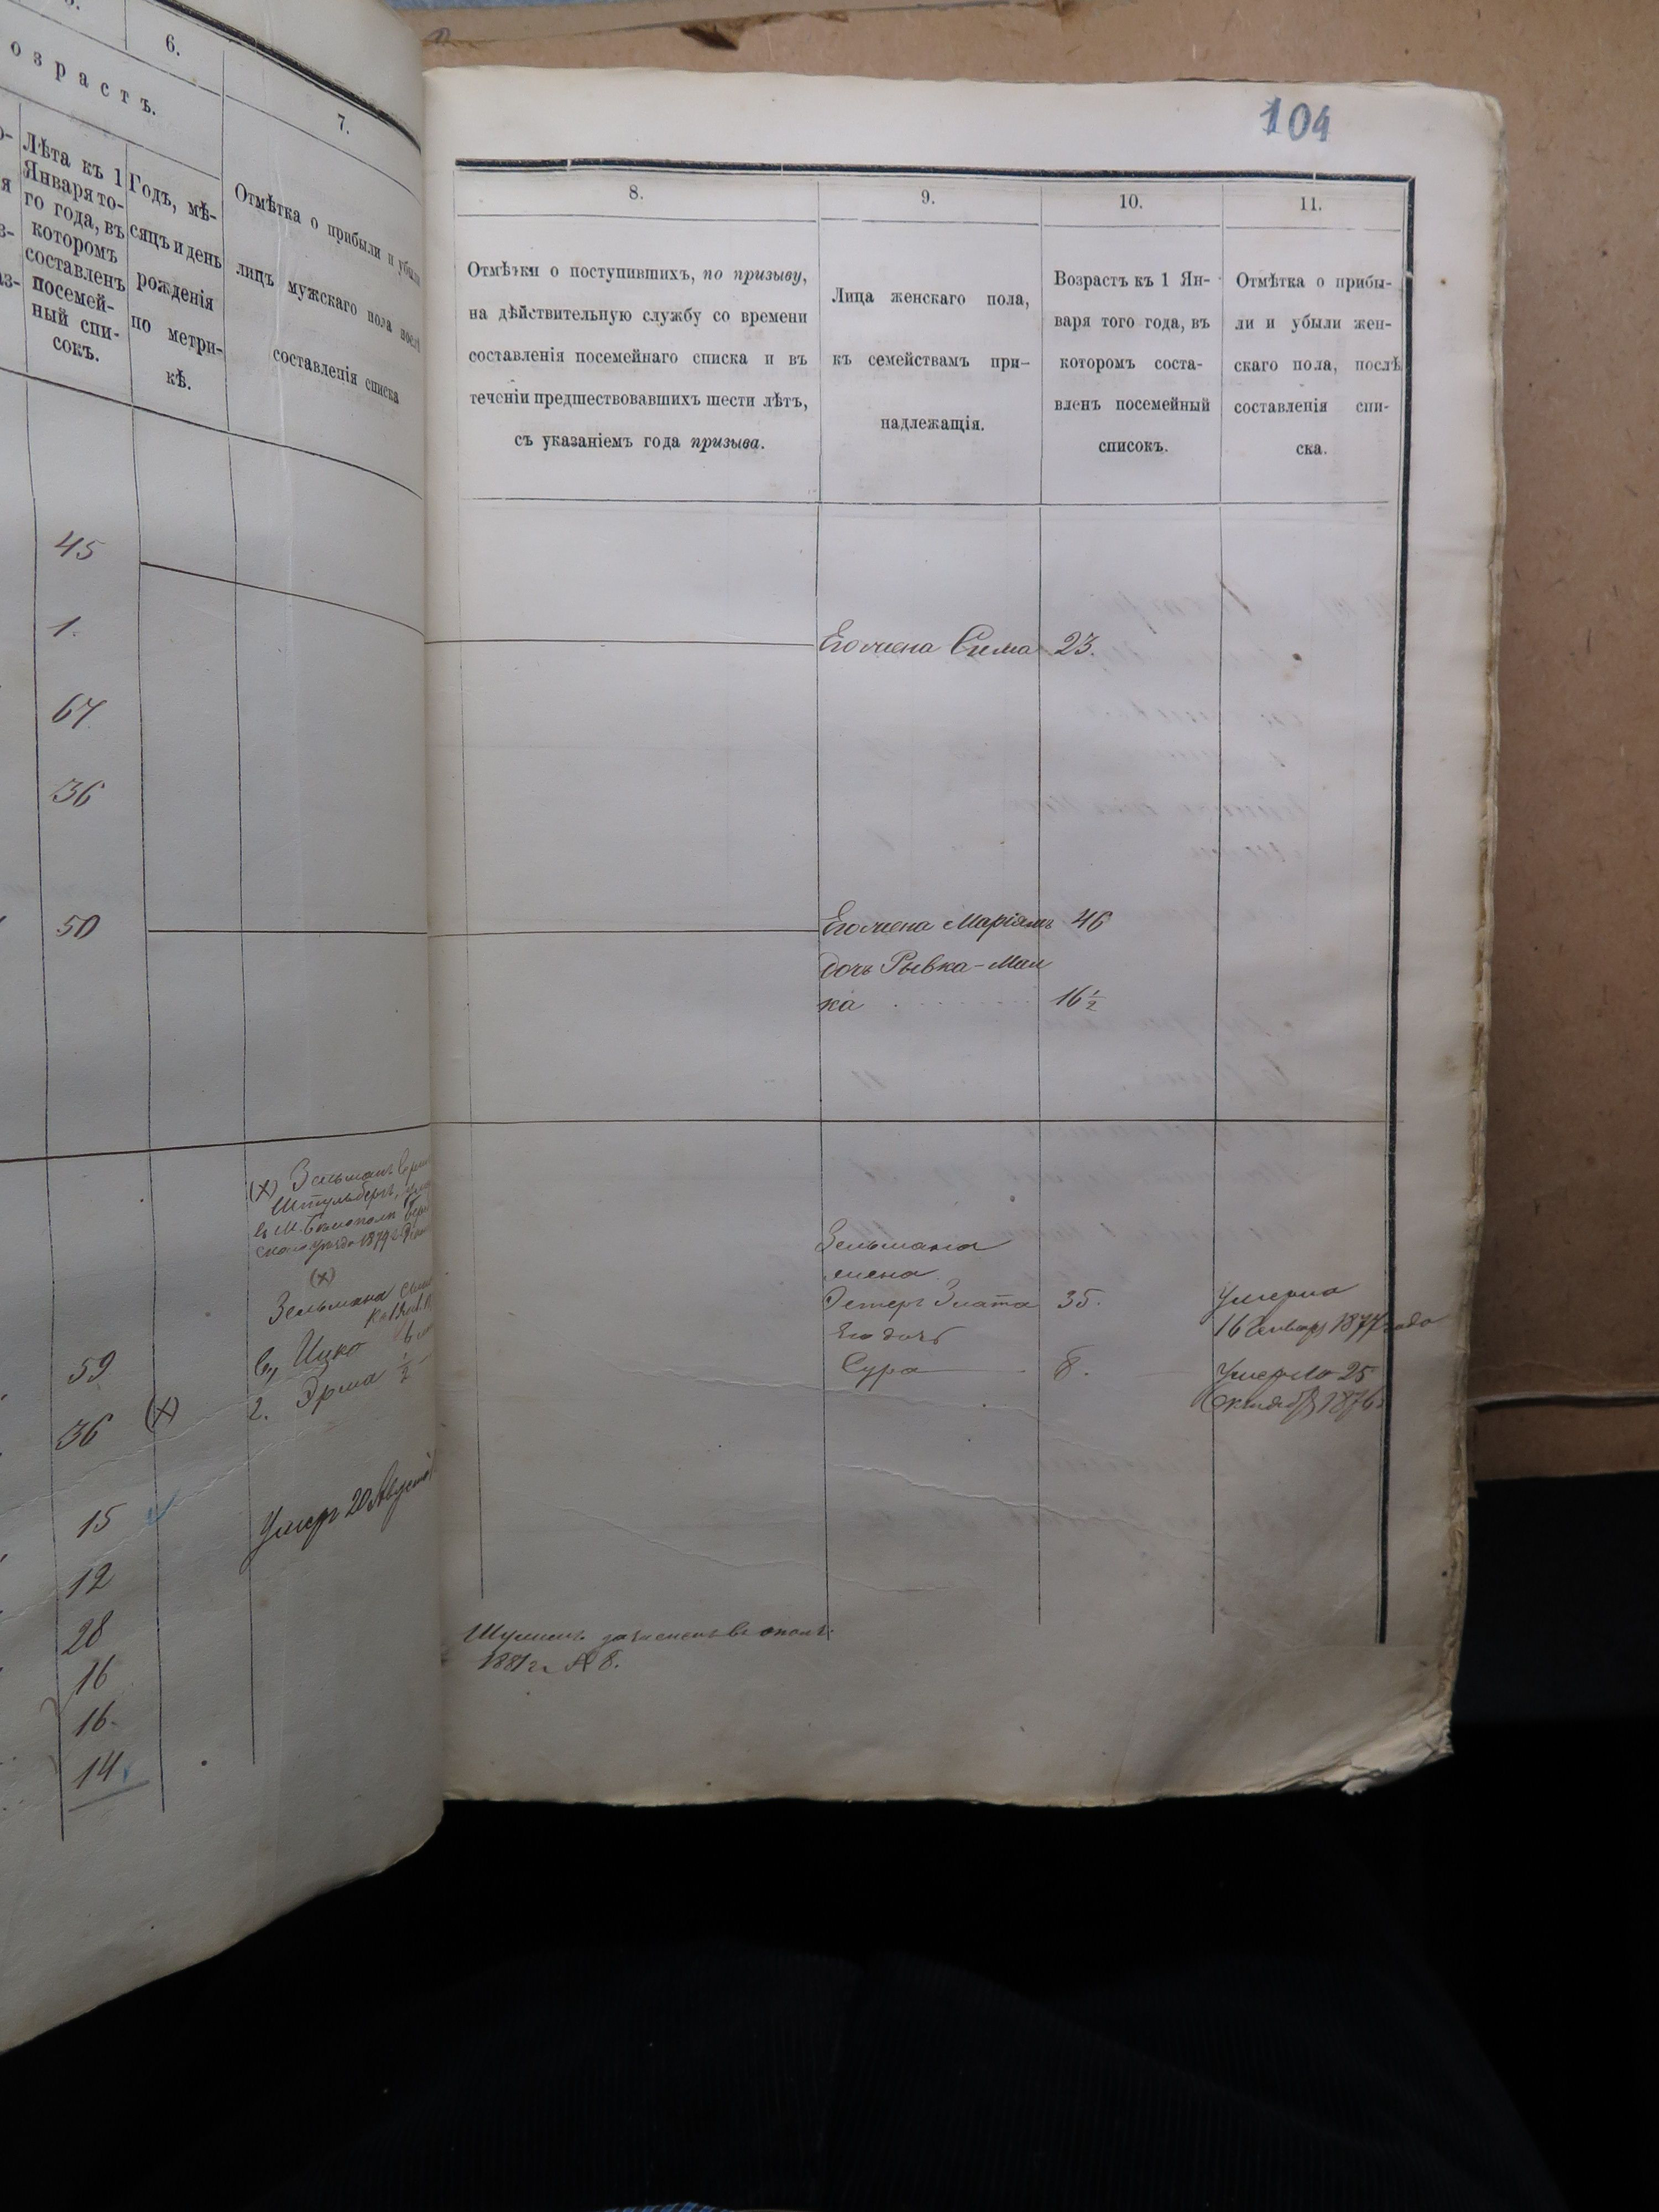 6.
озрастъ.
7.
Лѣта къ 1
Января то-
го года, въ
которомъ
составленъ
посемей-
ный спи-
сокъ.
Годъ, мѣ-
сяцъ и день
рожденія
по метри-
кѣ.
Отмѣтка о прибыли и убыли
лицъ мужскаго пола послѣ
составленія списка
45
1.
67
36
50
(х) Зельманъ
1879
(х)
Зельмана
Ицко
2. Эрма 1/2
59
36 (х)
15
Умеръ 20 Августа
12
28
16
16.
14
104
8.
9.
10.
11.
Отмѣтки о поступившихъ, по призыву,
на дѣйствительную службу со времени
составленія посемейнаго списка и въ
теченіи предшествовавшихъ шести лѣтъ,
съ указаніемъ года призыва.
Лица женскаго пола,
къ семействамъ при-
надлежащія.
Возрастъ къ 1 Ян-
варя того года, въ
которомъ соста-
вленъ посемейный
списокъ.
Отмѣтка о прибы-
ли и убыли жен-
скаго пола, послѣ
составленія спи-
ска.
Его жена Сима 23.
Его жена Маріямъ 46
дочь Рывка-Мал
ка 16 1/2
Зельмана
жена
Эстеръ Злата 35. Умерла
16 Января 1877 года
Его дочь
Сура 8. Умерла 25
Октября 1876
зачисленъ въ ополч.
1881 г. А 8.